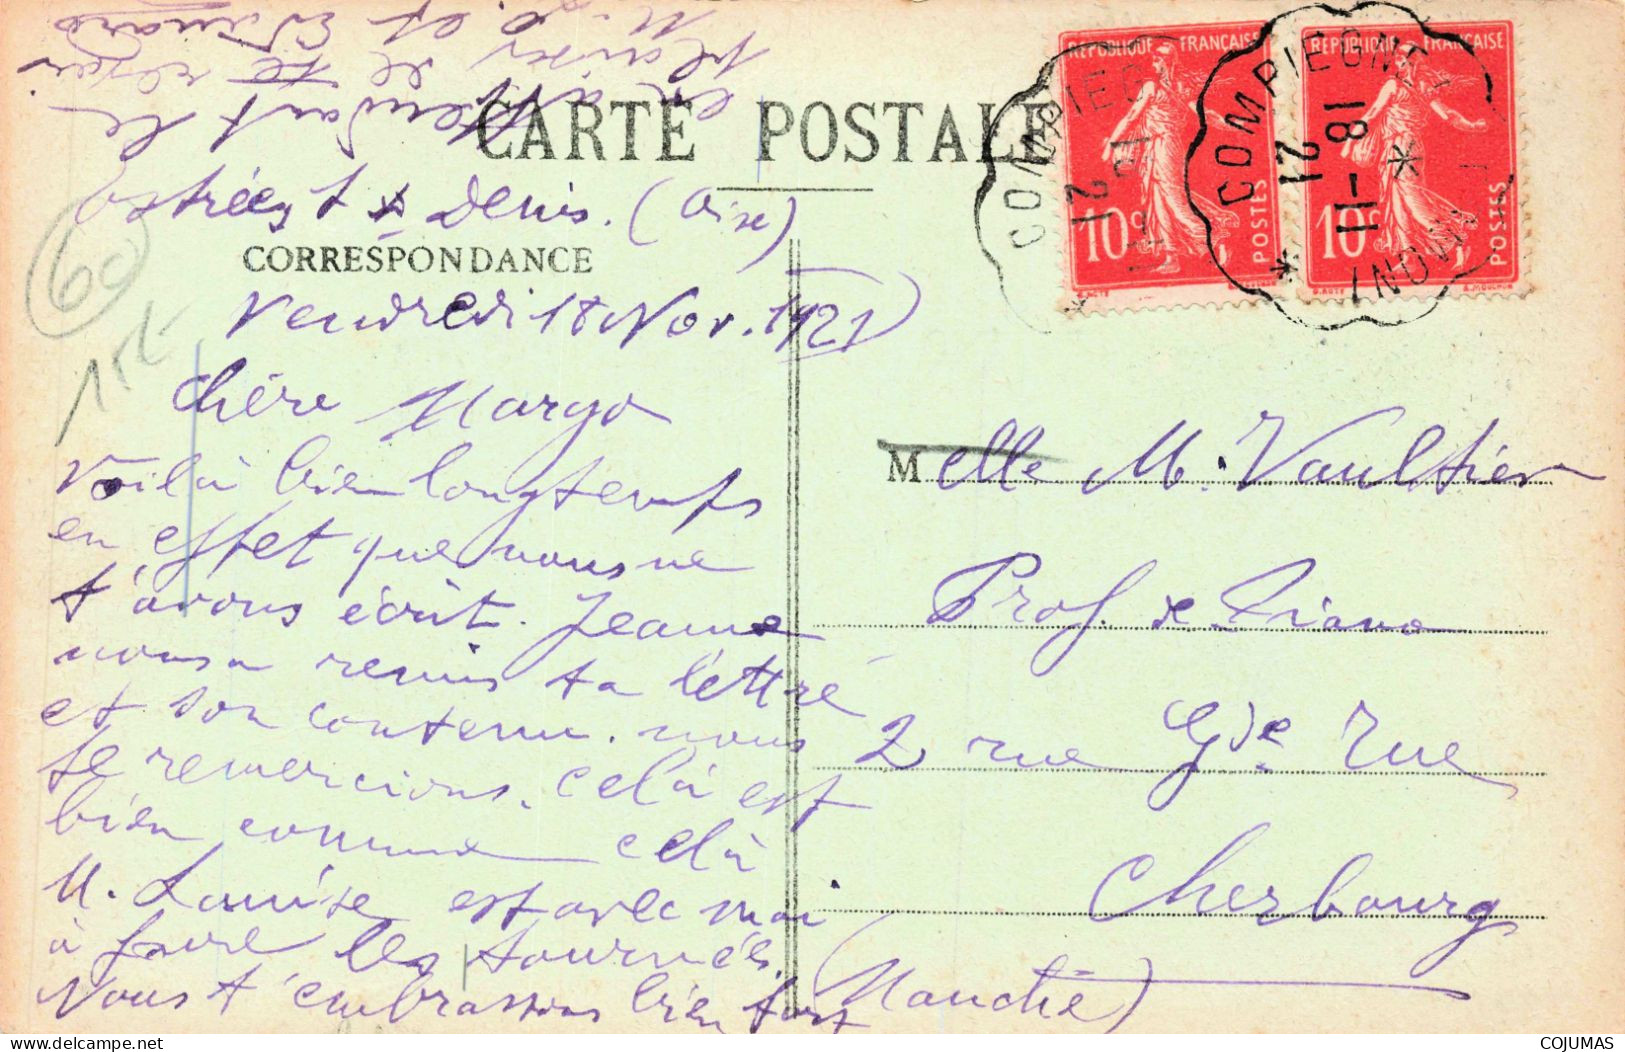 CARTE POSTALE
Estrées St Denis. (Oise)
CORRESPONDANCE
Vendredi 18 Nov. 1921
Chère Margo
Voilà bien longtemps
en effet que nous ne
t'avons écrit. Jeanne
nous a remis ta lettre
et son contenu. nous
te remercions. celà est
bien comme celà
M. Louise est avec moi
à faire les tournées.
Nous t'embrassons bien fort
en attendant le
plaisir de te revoir
M. L. et Edouard
60
15F
REPUBLIQUE FRANÇAISE
10c POSTES
REPUBLIQUE FRANÇAISE
10c POSTES
COMPIEGNE
21
COMPIEGNE
18-11
21
Melle M. Vaultier
Prof. de Piano
2 rue Gde Rue
Cherbourg
(Manche)
COJUMAS